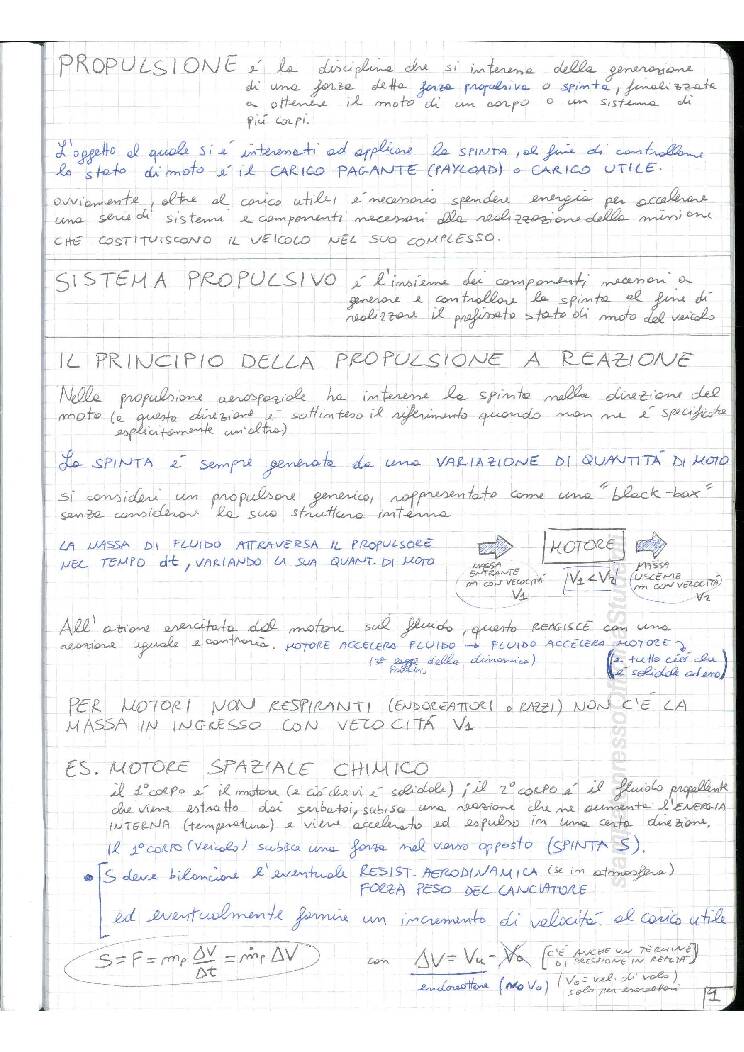 PROPULSIONE é la disciplina che si interessa della generazione
di una forza detta forza propulsiva o spinta, finalizzata
a ottenere il moto di un corpo o un sistema di
più corpi.
L'oggetto al quale si é interessati ad applicare la SPINTA, al fine di controllarne
lo stato di moto é il CARICO PAGANTE (PAYLOAD) o CARICO UTILE.
ovviamente, oltre al carico utile, é necessario spendere energia per accelerare
una serie di sistemi e componenti necessari alla realizzazione della missione
CHE COSTITUISCONO IL VEICOLO NEL SUO COMPLESSO.
SISTEMA PROPULSIVO é l'insieme dei componenti necessari a
generare e controllare la spinta al fine di
realizzare il prefissato stato di moto del veicolo
IL PRINCIPIO DELLA PROPULSIONE A REAZIONE
Nella propulsione aerospaziale ha interesse la spinta nella direzione del
moto (a questa direzione é sottinteso il riferimento quando non ne é specificata
esplicitamente un'altra)
La SPINTA é sempre generata da una VARIAZIONE DI QUANTITÁ DI MOTO
si consideri un propulsore generico, rappresentato come una "black-box"
senza considerare la sua struttura interna
LA MASSA DI FLUIDO ATTRAVERSA IL PROPULSORE
NEL TEMPO dt, VARIANDO LA SUA QUANT. DI MOTO
MOTORE
MASSA
ENTRANTE
m CON VELOCITÁ
V1
V1 < V2
MASSA
USCENTE
m CON VELOCITÁ
V2
All'azione esercitata dal motore sul fluido, questo REAGISCE con una
reazione uguale e contraria. MOTORE ACCELERA FLUIDO → FLUIDO ACCELERA MOTORE
della dinamica)
(e tutto ció che
é solidale ad esso)
PER MOTORI NON RESPIRANTI (ENDOREATTORI o RAZZI) NON C'É LA
MASSA IN INGRESSO CON VELOCITÁ V1
ES. MOTORE SPAZIALE CHIMICO
il 1° CORPO é il motore (e ció che vi é solidale); il 2° CORPO é il fluido propellente
che viene estratto dai serbatoi, subisce una reazione che ne aumenta l'ENERGIA
INTERNA (temperatura) e viene accelerato ed espulso in una certa direzione.
Il 1° CORPO (veicolo) subisce una forza nel verso opposto (SPINTA S).
• S deve bilanciare l'eventuale RESIST. AERODINAMICA (se in atmosfera)
FORZA PESO DEL LANCIATORE
ed eventualmente fornire un incremento di velocità al carico utile
S = F = mp ΔV/Δt = ṁp ΔV con ΔV = Vu - V0 [C'É ANCHE UN TERMINE
DI PRESSIONE IN REALTÁ]
endoreattore (NO V0) (V0 = vel. di volo)
solo per esoreattori
1